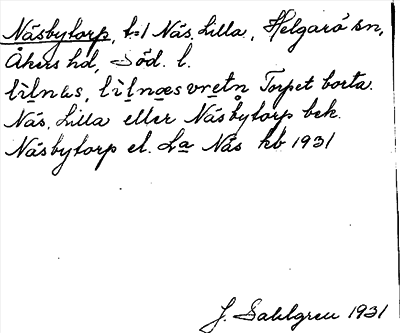 Näsbytorp, t=1 Näs, Lilla, Helgarö sn,
Åkers hd, Söd. l.
lìlnɑs, lìlnæsvretn Torpet borta.
Näs, Lilla eller Näsbytorp bek.
Näsbytorp el. La Näs kb 1931
J. Sahlgren 1931